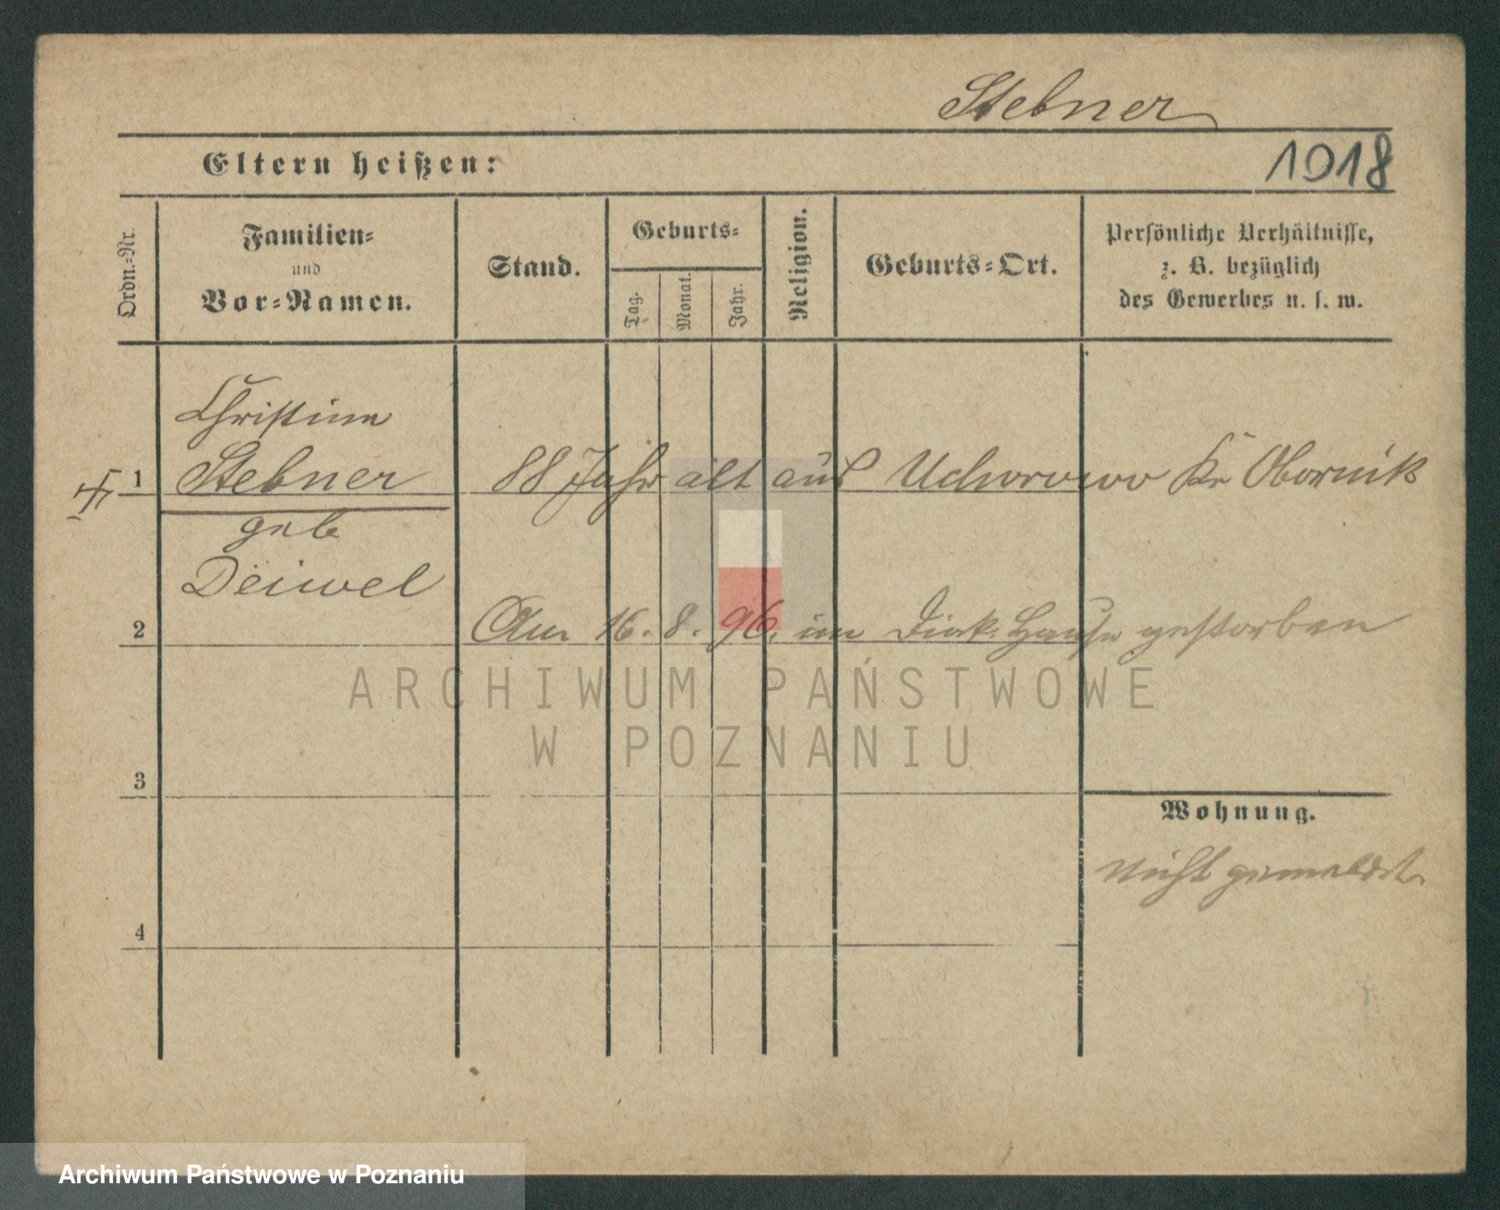 Stebner
Eltern heißen:
1018
Ordn.-Nr.
Familien-
und
Vor-Namen.
Stand.
Geburts-
Tag.
Monat.
Jahr.
Religion.
Geburts-Ort.
Persönliche Verhältnisse,
z. B. bezüglich
des Gewerbes u. s. w.
Christine
1 Stebner 88 Jahr alt aus Uchorowo Kr Obornik
geb
Deiwel
2 Am 16. 8. 96. im Diak. Hause gestorben
ARCHIWUM PAŃSTWOWE
W POZNANIU
3
Wohnung.
nicht gemeldet.
4
Archiwum Państwowe w Poznaniu